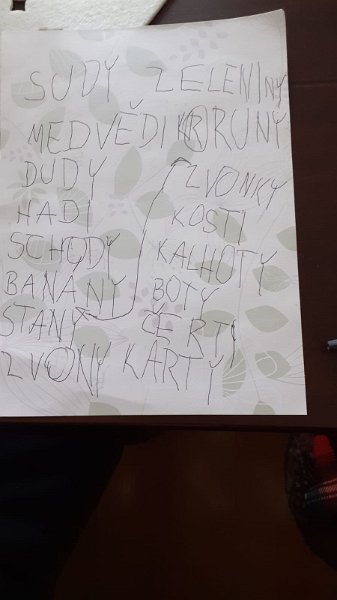 SUDY ZELENINY
MEDVĚDI KORUNY
DUDY ZVONKY
HADI KOSTI
SCHODY KALHOTY
BANÁNY BOTY
STANY ČERTI
ZVONY KARTY